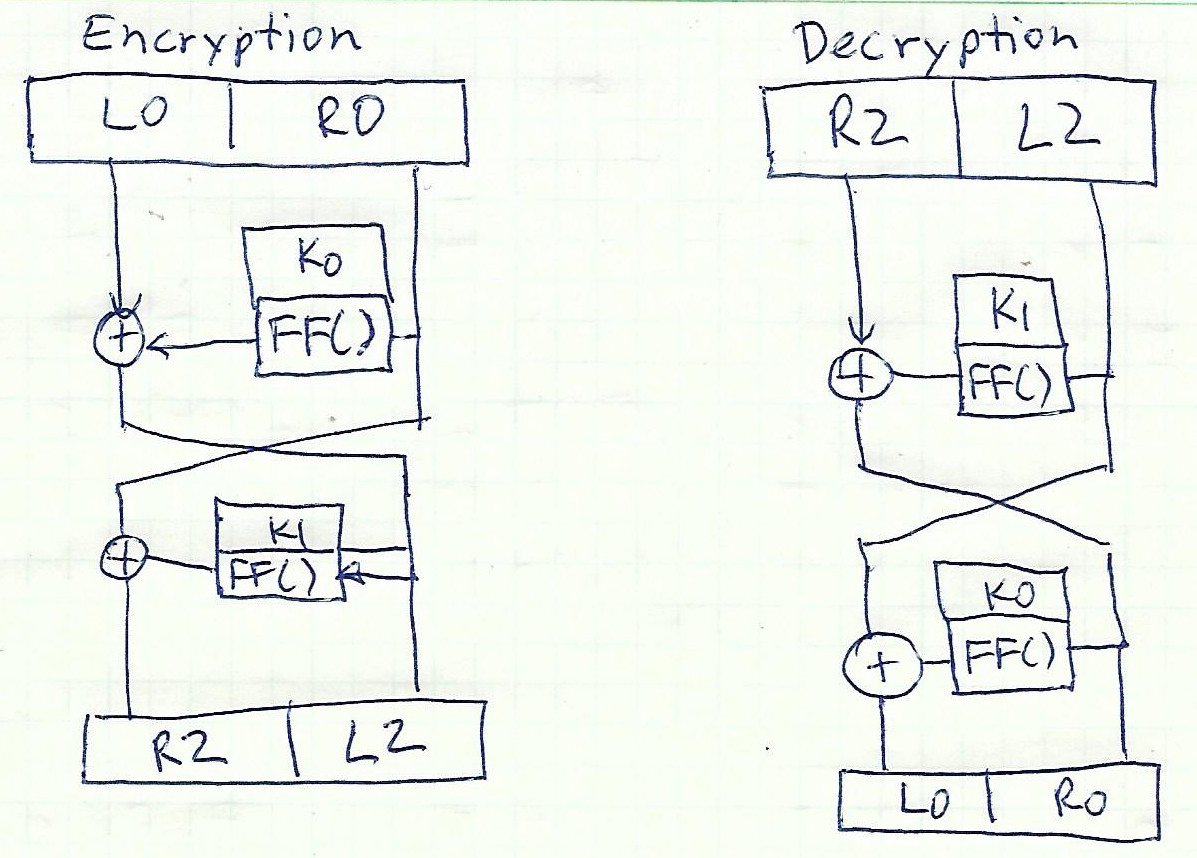 Encryption
L0 R0
K0
FF()
+
K1
FF()
+
R2 L2
Decryption
R2 L2
K1
FF()
+
K0
FF()
+
L0 R0